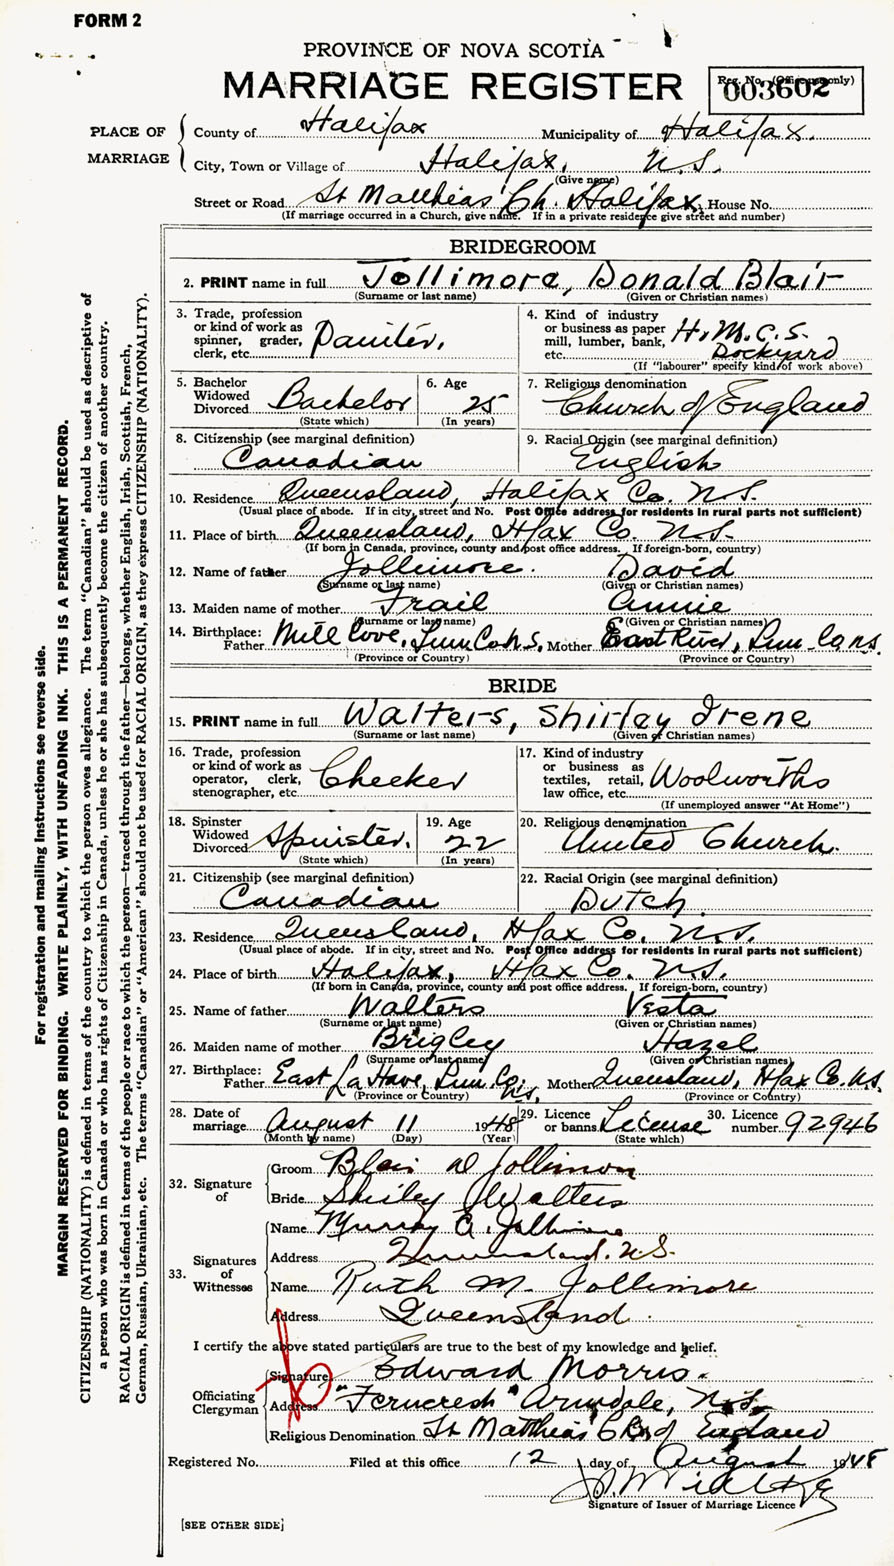 FORM 2
PROVINCE OF NOVA SCOTIA
MARRIAGE REGISTER
Reg. No. (Office use only)
003602
PLACE OF MARRIAGE
County of Halifax Municipality of Halifax.
City, Town or Village of Halifax, N.S.
(Give name)
Street or Road St Matthias' Ch. Halifax, House No.
(If marriage occurred in a Church, give name. If in a private residence give street and number)
BRIDEGROOM
2. PRINT name in full Jollimore, Donald Blair
(Surname or last name) (Given or Christian names)
3. Trade, profession or kind of work as spinner, grader, clerk, etc. Painter,
4. Kind of industry or business as paper mill, lumber, bank, etc. H.M.C.S. Dockyard
(If "labourer" specify kind of work above)
5. Bachelor Widowed Divorced Bachelor
(State which)
6. Age 25
(In years)
7. Religious denomination
Church of England
8. Citizenship (see marginal definition)
Canadian
9. Racial Origin (see marginal definition)
English
10. Residence Queensland, Halifax Co. N.S.
(Usual place of abode. If in city, street and No. Post Office address for residents in rural parts not sufficient)
11. Place of birth Queensland, Hfax Co. N.S.
(If born in Canada, province, county and post office address. If foreign-born, country)
12. Name of father Jollimore. David
(Surname or last name) (Given or Christian names)
13. Maiden name of mother Frail Annie
(Surname or last name) (Given or Christian names)
14. Birthplace: Father Mill Cove, Lun Co N.S. Mother East River, Lun Co N.S.
(Province or Country) (Province or Country)
BRIDE
15. PRINT name in full Walters, Shirley Irene
(Surname or last name) (Given or Christian names)
16. Trade, profession or kind of work as operator, clerk, stenographer, etc. Checker
17. Kind of industry or business as textiles, retail, law office, etc. Woolworths
(If unemployed answer "At Home")
18. Spinster Widowed Divorced Spinster.
(State which)
19. Age 22
(In years)
20. Religious denomination
United Church.
21. Citizenship (see marginal definition)
Canadian
22. Racial Origin (see marginal definition)
Dutch
23. Residence Queensland, Hfax Co. N.S.
(Usual place of abode. If in city, street and No. Post Office address for residents in rural parts not sufficient)
24. Place of birth Halifax, Hfax Co. N.S.
(If born in Canada, province, county and post office address. If foreign-born, country)
25. Name of father Walters Vesta
(Surname or last name) (Given or Christian names)
26. Maiden name of mother Brigley Hazel
(Surname or last name) (Given or Christian names)
27. Birthplace: Father East La Have, Lun Co. N.S. Mother Queensland, Hfax Co. N.S.
(Province or Country) (Province or Country)
28. Date of marriage August 11 1948
(Month by name) (Day) (Year)
29. Licence or banns License
(State which)
30. Licence number 92946
32. Signature of
Groom Blair D Jollimore
Bride Shirley Walters
33. Signatures of Witnesses
Name Murray Jollimore
Address Queensland. N.S.
Name Ruth M. Jollimore
Address Queensland.
I certify the above stated particulars are true to the best of my knowledge and belief.
Officiating Clergyman
Signature Edward Morris.
Address "Ferncresh" Armdale, N.S.
Religious Denomination St Matthias' Ch of England
Registered No. Filed at this office 12 day of August 1948
Signature of Issuer of Marriage Licence
[SEE OTHER SIDE]
For registration and mailing instructions see reverse side.
MARGIN RESERVED FOR BINDING. WRITE PLAINLY, WITH UNFADING INK. THIS IS A PERMANENT RECORD.
CITIZENSHIP (NATIONALITY) is defined in terms of the country to which the person owes allegiance. The term "Canadian" should be used as descriptive of
a person who was born in Canada or who has rights of Citizenship in Canada, unless he or she has subsequently become the citizen of another country.
RACIAL ORIGIN is defined in terms of the people or race to which the person—traced through the father—belongs, whether English, Irish, Scottish, French,
German, Russian, Ukrainian, etc. The terms "Canadian" or "American" should not be used for RACIAL ORIGIN, as they express CITIZENSHIP (NATIONALITY).